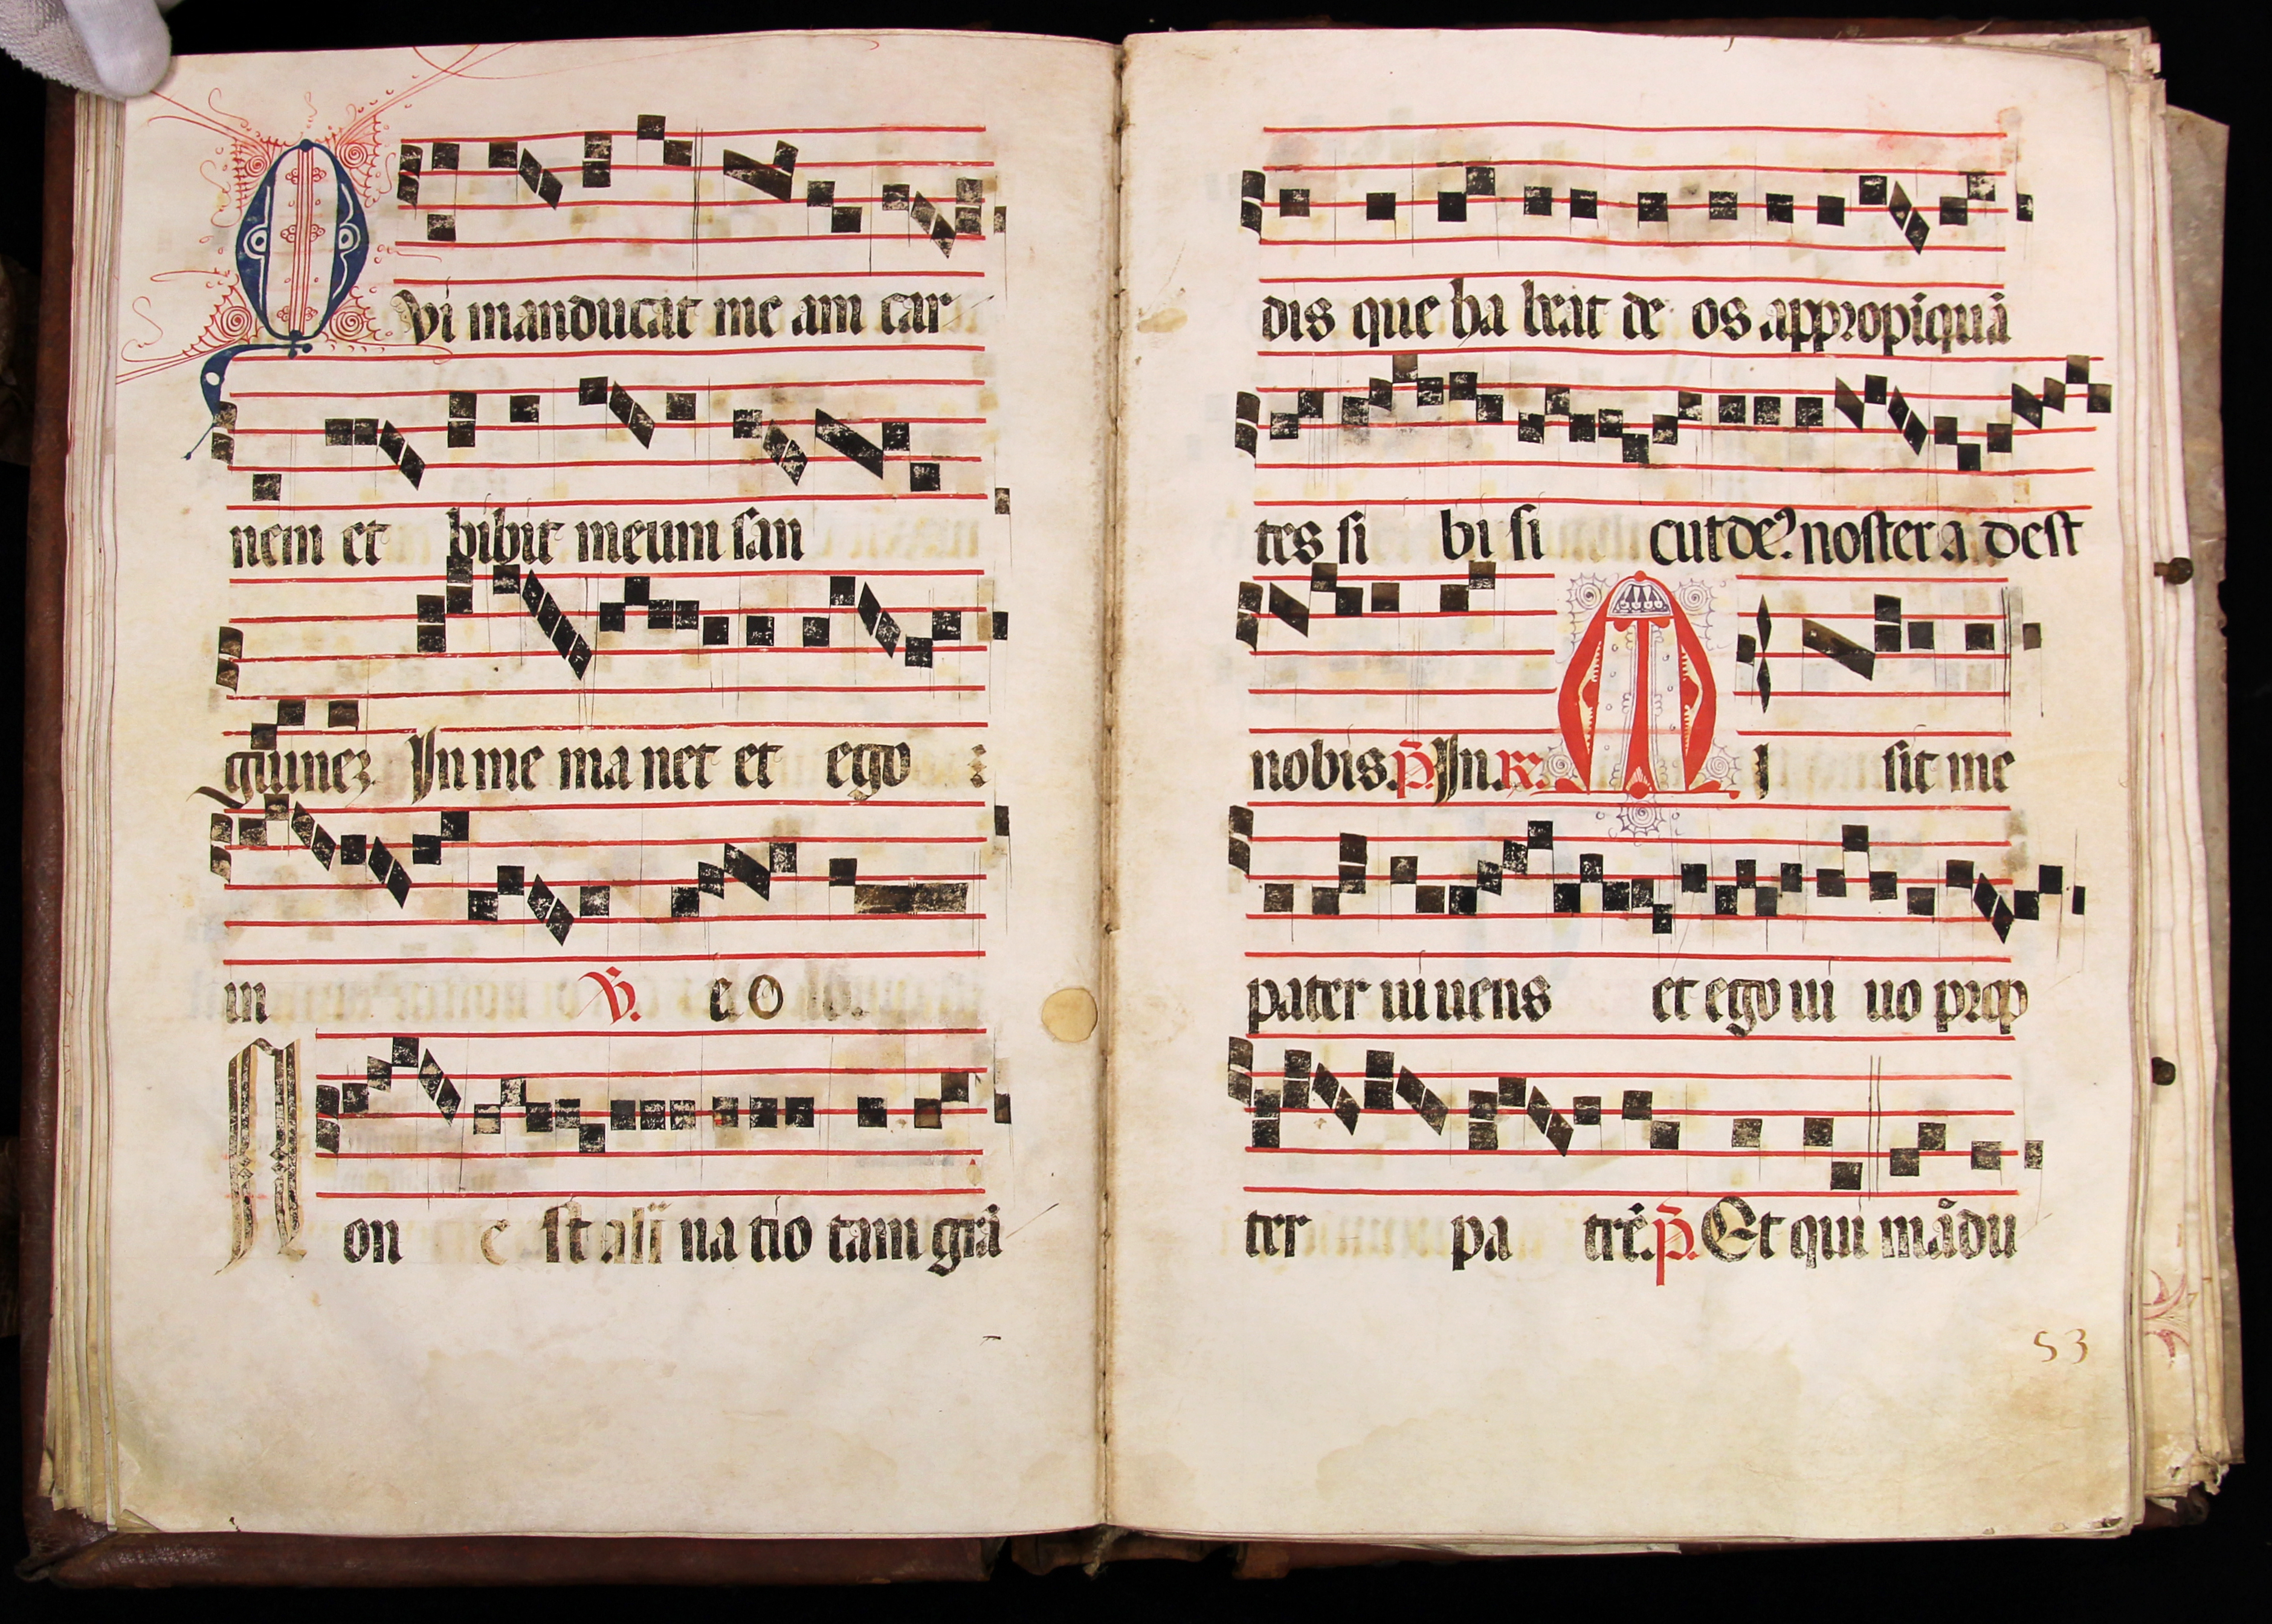 Qvi manducat me am car
nem et bibit meum san
guinez In me ma net et ego :
in ℣. e o
Non e st alii na tio tam grã
dis que ha beat de os appropiquã
tes si bi si cut de⁹ noster a dest
nobis. p̃. In. ℟. M I sit me
pater ui uens et ego ui uo prop
ter pa trẽ. p̃. Et qui mãdu
53